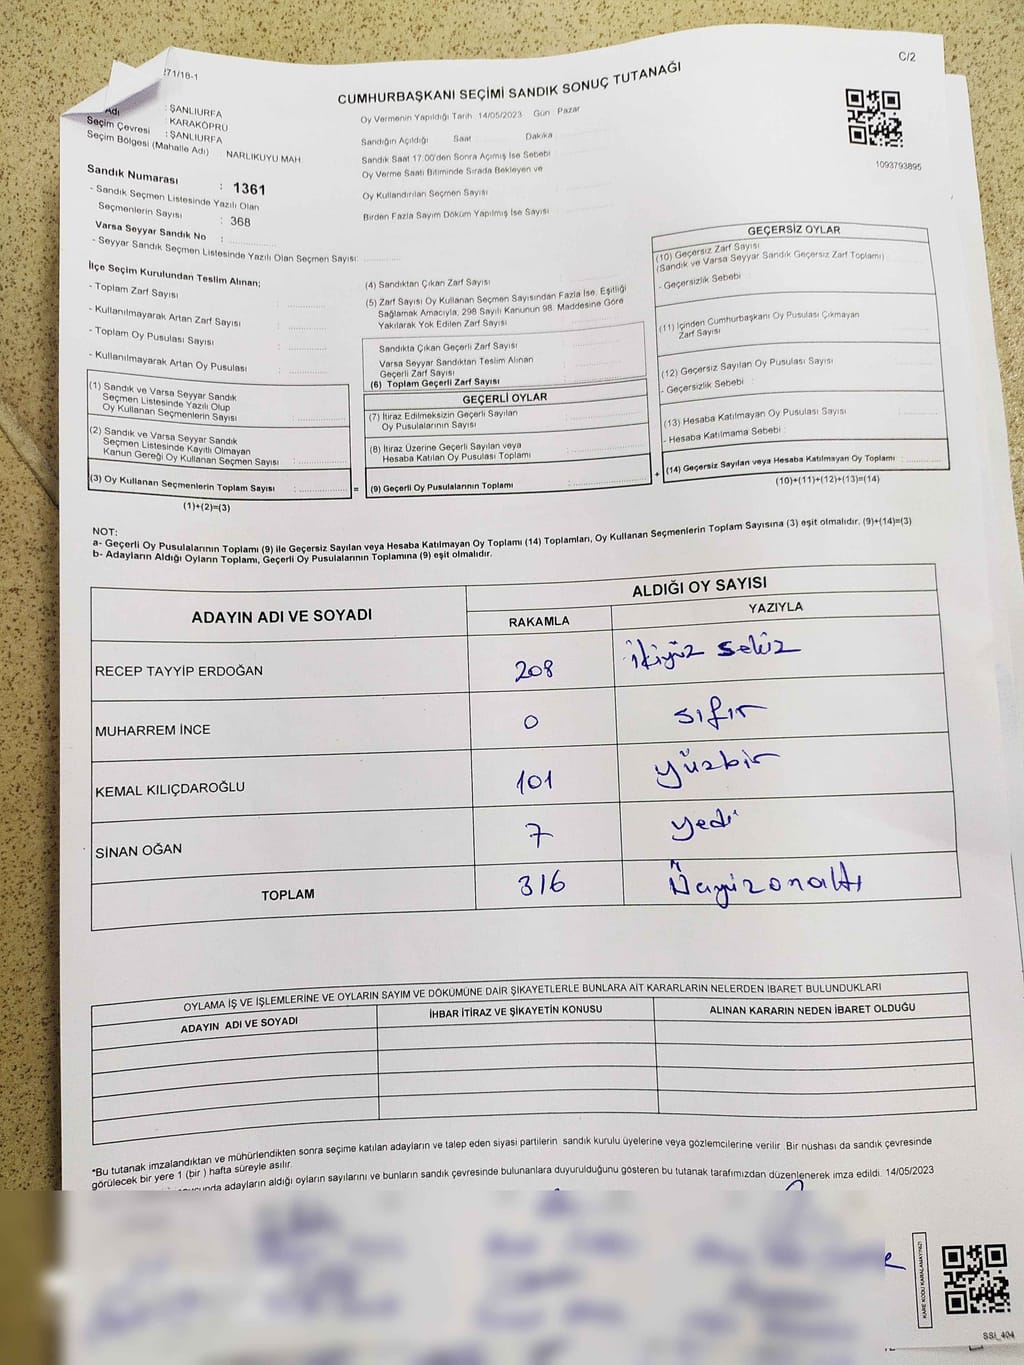 271/18-1
C/2
CUMHURBAŞKANI SEÇİMİ SANDIK SONUÇ TUTANAĞI
Adı : ŞANLIURFA
: KARAKÖPRÜ
Seçim Çevresi : ŞANLIURFA
Seçim Bölgesi (Mahalle Adı) : NARLIKUYU MAH
Sandık Numarası : 1361
- Sandık Seçmen Listesinde Yazılı Olan
Seçmenlerin Sayısı : 368
Varsa Seyyar Sandık No :
- Seyyar Sandık Seçmen Listesinde Yazılı Olan Seçmen Sayısı:
Oy Vermenin Yapıldığı Tarih 14/05/2023 Gün Pazar
Sandığın Açıldığı Saat Dakika
Sandık Saat 17.00'den Sonra Açımış İse Sebebi
Oy Verme Saati Bitiminde Sırada Bekleyen ve
Oy Kullandırılan Seçmen Sayısı
Birden Fazla Sayım Döküm Yapılmış İse Sayısı
1093793895
İlçe Seçim Kurulundan Teslim Alınan;
- Toplam Zarf Sayısı :
- Kullanılmayarak Artan Zarf Sayısı :
- Toplam Oy Pusulası Sayısı :
- Kullanılmayarak Artan Oy Pusulası :
(1) Sandık ve Varsa Seyyar Sandık
Seçmen Listesinde Yazılı Olup
Oy Kullanan Seçmenlerin Sayısı :
(2) Sandık ve Varsa Seyyar Sandık
Seçmen Listesinde Kayıtlı Olmayan
Kanun Gereği Oy Kullanan Seçmen Sayısı :
(3) Oy Kullanan Seçmenlerin Toplam Sayısı :
(1)+(2)=(3)
(4) Sandıktan Çıkan Zarf Sayısı :
(5) Zarf Sayısı Oy Kullanan Seçmen Sayısından Fazla İse, Eşitliği
Sağlamak Amacıyla; 298 Sayılı Kanunun 98. Maddesine Göre
Yakılarak Yok Edilen Zarf Sayısı :
Sandıkta Çıkan Geçerli Zarf Sayısı :
Varsa Seyyar Sandıktan Teslim Alınan
Geçerli Zarf Sayısı :
(6) Toplam Geçerli Zarf Sayısı :
GEÇERLİ OYLAR
(7) İtiraz Edilmeksizin Geçerli Sayılan :
Oy Pusulalarının Sayısı
(8) İtiraz Üzerine Geçerli Sayılan veya
Hesaba Katılan Oy Pusulası Toplamı :
= (9) Geçerli Oy Pusulalarının Toplamı :
GEÇERSİZ OYLAR
(10) Geçersiz Zarf Sayısı
(Sandık ve Varsa Seyyar Sandık Geçersiz Zarf Toplamı)
- Geçersizlik Sebebi :
(11) İçinden Cumhurbaşkanı Oy Pusulası Çıkmayan
Zarf Sayısı :
(12) Geçersiz Sayılan Oy Pusulası Sayısı
- Geçersizlik Sebebi :
(13) Hesaba Katılmayan Oy Pusulası Sayısı :
- Hesaba Katılmama Sebebi :
+ (14) Geçersiz Sayılan veya Hesaba Katılmayan Oy Toplamı :
(10)+(11)+(12)+(13)=(14)
NOT:
a- Geçerli Oy Pusulalarının Toplamı (9) ile Geçersiz Sayılan veya Hesaba Katılmayan Oy Toplamı (14) Toplamları, Oy Kullanan Seçmenlerin Toplam Sayısına (3) eşit olmalıdır. (9)+(14)=(3)
b- Adayların Aldığı Oyların Toplamı, Geçerli Oy Pusulalarının Toplamına (9) eşit olmalıdır.
ADAYIN ADI VE SOYADI
ALDIĞI OY SAYISI
RAKAMLA YAZIYLA
RECEP TAYYİP ERDOĞAN 208 ikiyüz sekiz
MUHARREM İNCE 0 sıfır
KEMAL KILIÇDAROĞLU 101 yüzbir
SİNAN OĞAN 7 yedi
TOPLAM 316 Üçyüzonaltı
OYLAMA İŞ VE İŞLEMLERİNE VE OYLARIN SAYIM VE DÖKÜMÜNE DAİR ŞİKAYETLERLE BUNLARA AİT KARARLARIN NELERDEN İBARET BULUNDUKLARI
ADAYIN ADI VE SOYADI İHBAR İTİRAZ VE ŞİKAYETİN KONUSU ALINAN KARARIN NEDEN İBARET OLDUĞU
*Bu tutanak imzalandıktan ve mühürlendikten sonra seçime katılan adayların ve talep eden siyasi partilerin sandık kurulu üyelerine veya gözlemcilerine verilir. Bir nüshası da sandık çevresinde
görülecek bir yere 1 (bir ) hafta süreyle asılır.
adayların aldığı oyların sayılarını ve bunların sandık çevresinde bulunanlara duyurulduğunu gösteren bu tutanak tarafımızdan düzenlenerek imza edildi. 14/05/2023
KARE KODU KARALAMAYINIZ!
SSİ_404